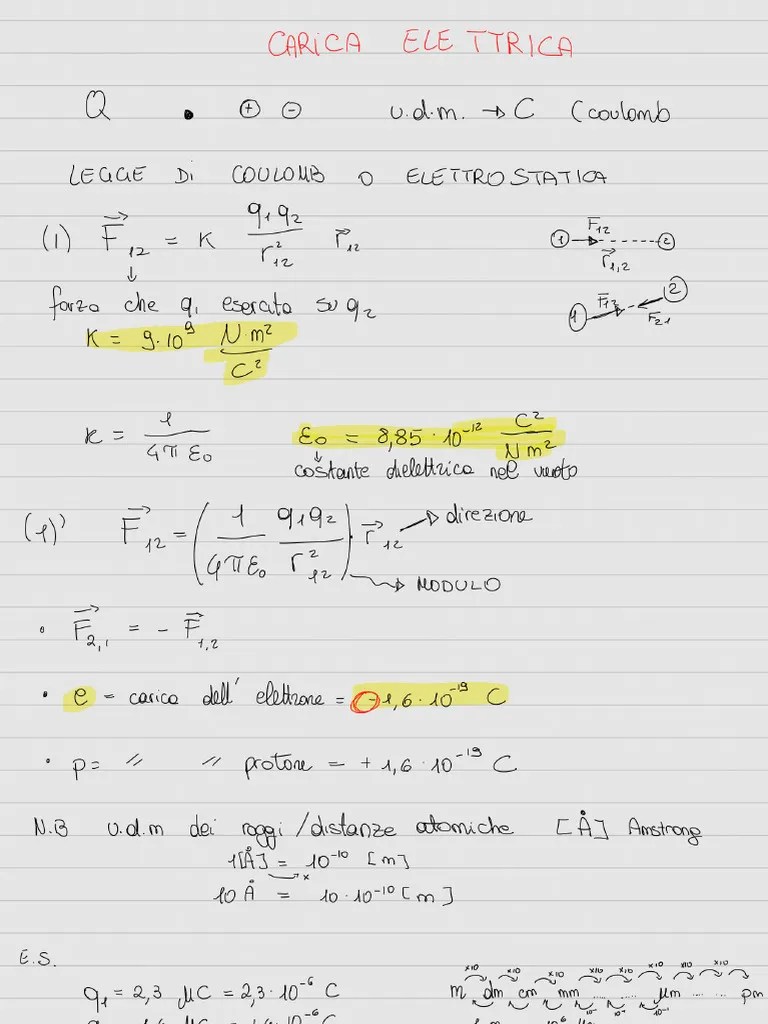 CARICA ELETTRICA
Q • ⊕ ⊖ u.d.m. → C (coulomb
LEGGE DI COULOMB O ELETTROSTATICA
(1) F⃗₁₂ = K q₁q₂ / r²₁₂ r⃗₁₂
1 F⃗₁₂ 2
r⃗₁,₂
↓
forza che q₁ esercata su q₂
1 F⃗₁₂ F₂₁ 2
K = 9·10⁹ N·m² / C²
K = 1 / 4πε₀ ε₀ = 8,85·10⁻¹² C² / Nm²
↓
costante dielettrica nel vuoto
(1)' F⃗₁₂ = (1 / 4πε₀ q₁q₂ / r²₁₂) · r⃗₁₂ → direzione
→ MODULO
• F⃗₂,₁ = - F⃗₁,₂
• e = carica dell' elettrone = -1,6·10⁻¹⁹ C
• p = // // protone = +1,6·10⁻¹⁹ C
N.B u.d.m dei raggi/distanze atomiche [Å] Amstrong
1[Å] = 10⁻¹⁰ [m]
x
10 Å = 10·10⁻¹⁰ [m]
E.S.
x10 x10 x10 x10 x10 x10 x10 x10
q₁ = 2,3 μC = 2,3·10⁻⁶ C
m dm cm mm ........ μm ........ pm